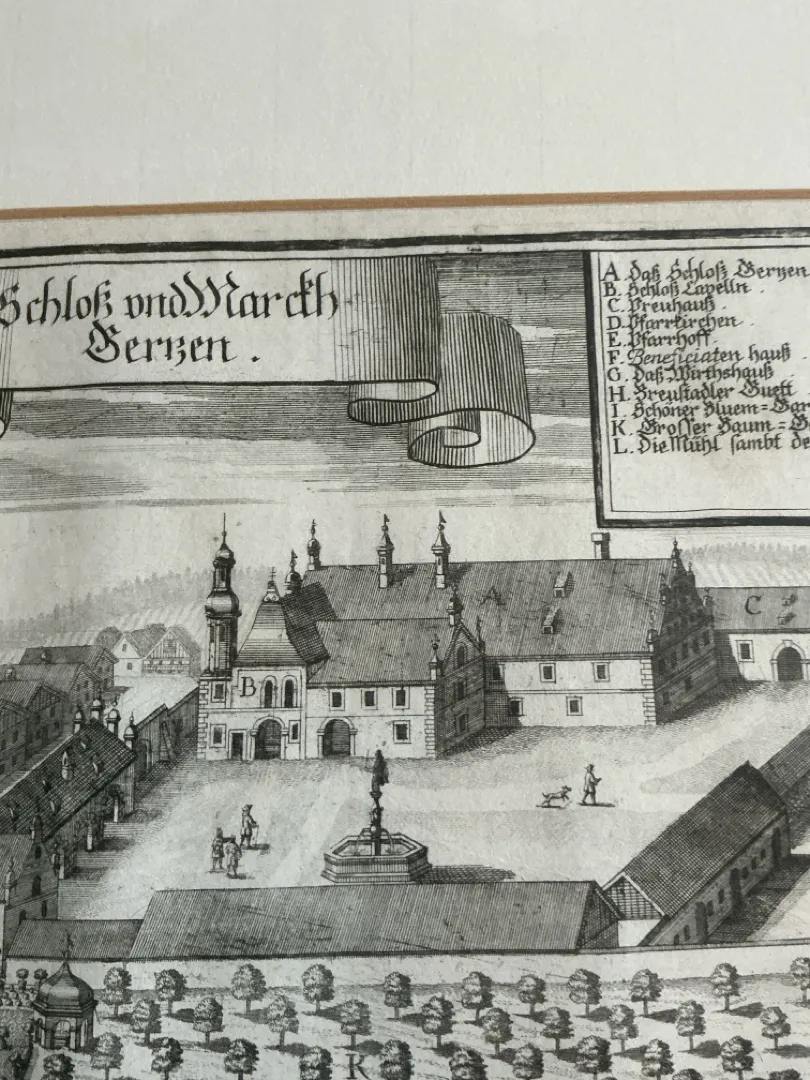 Schloß vnd Marckh
Gerzen .
A. Daß Schloß Gerzen
B. Schloß Capelln .
C. Preuhauß .
D. Pfarrkirchen .
E. Pfarrhoff .
F. Beneficiaten hauß .
G. Daß Wirthshauß
H. Breustadler Guett
I. Schöner Bluem=Gar
K. Grosser Baum=Ga
L. Die Mühl sambt de
A
C
B
K